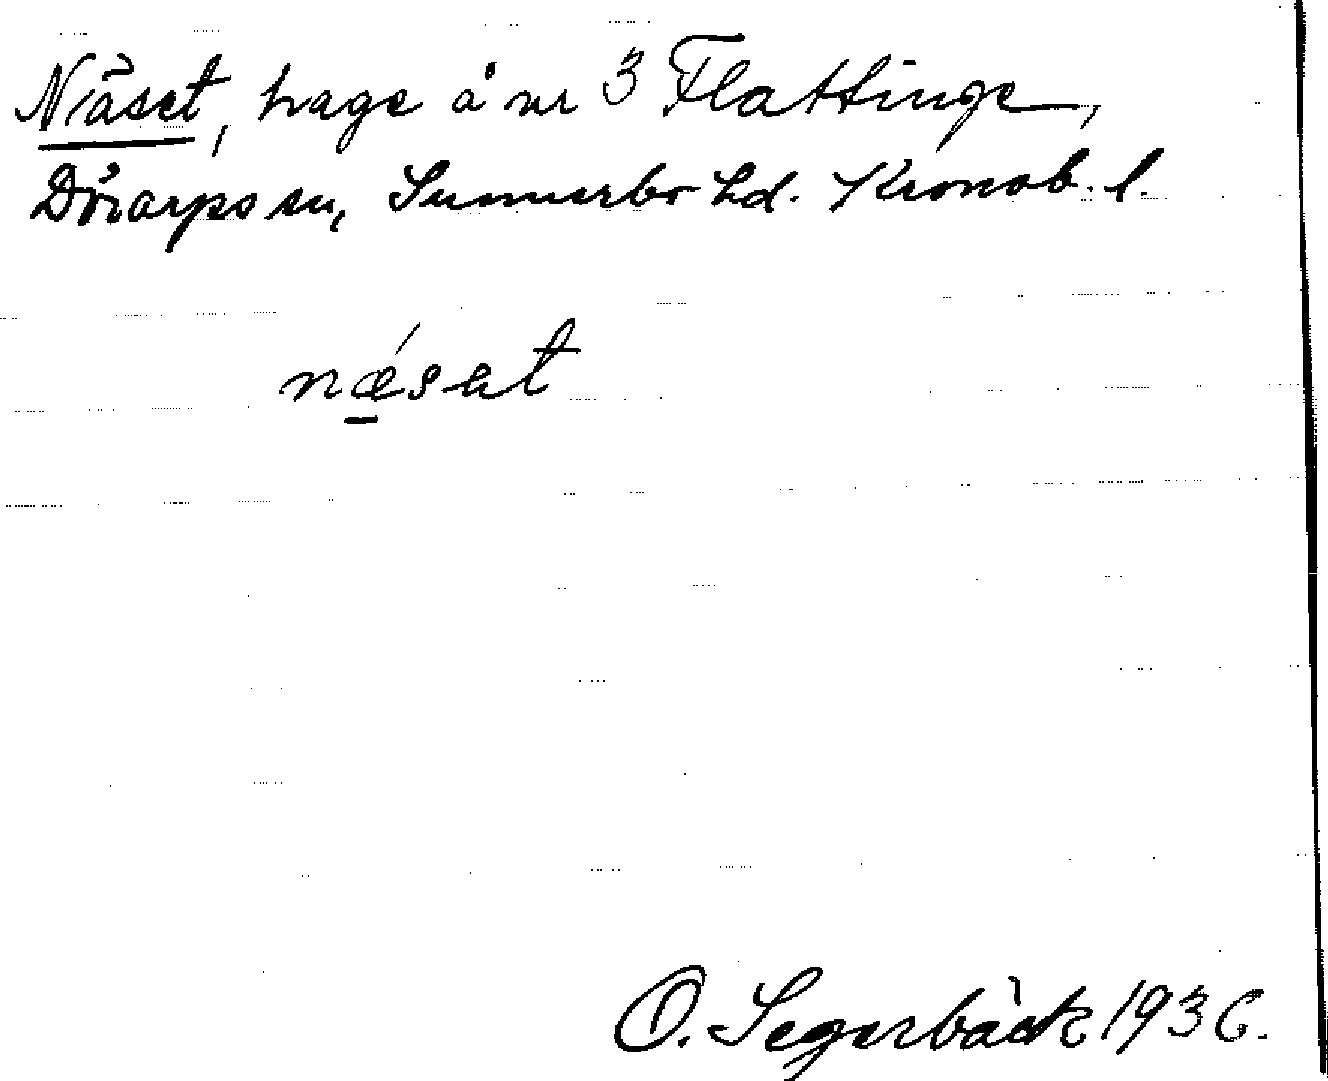 Näset, hage å nr 3 Flattinge,
Dörarps sn, Sunnerbo hd. Kronob. l.
nǽsət
O. Segerbäck 1936.